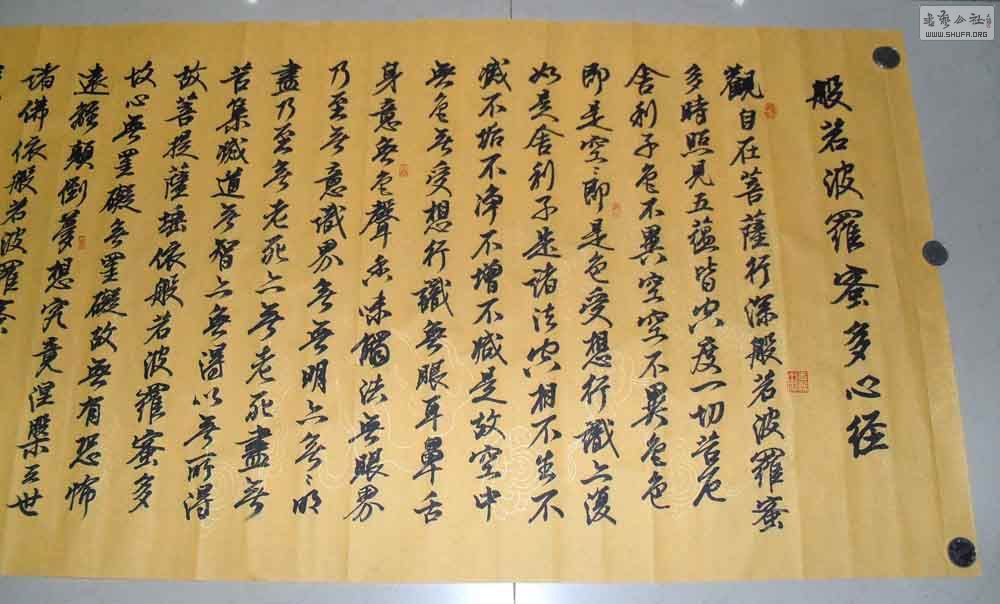 般若波羅蜜多心径
觀自在菩薩行深般若波羅蜜
多時照見五蕴皆空度一切苦厄
舍利子色不異空空不異色色
即是空空即是色受想行識亦復
如是舍利子是諸法空相不生不
滅不垢不净不增不减是故空中
無色無受想行識無眼耳鼻舌
身意無色聲香味觸法無眼界
乃至無意識界無無明亦無無明
盡乃至無老死亦無老死盡無
苦集滅道無智亦無得以無所得
故菩提薩埵依般若波羅蜜多
故心無罣礙無罣礙故無有恐怖
遠離顛倒夢想究竟涅槃三世
諸佛依般若波羅蜜
WWW.SHUFA.ORG